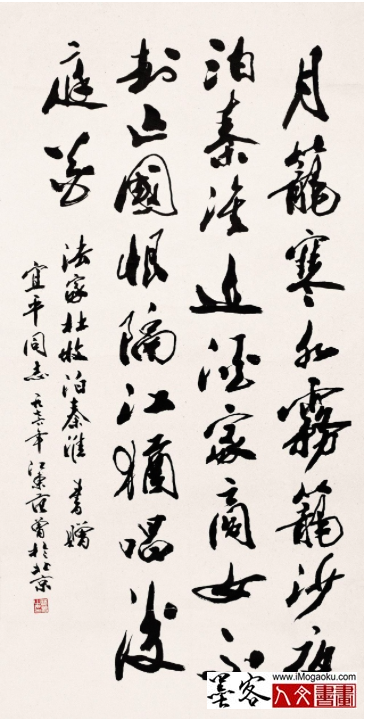 月籠寒水霧籠沙夜
泊秦淮近酒家商女不
知亡國恨隔江猶唱後
庭花
法家杜牧泊秦淮 書贈
宜平同志 一九七六年 江東范曾於北京
墨客
www.iMogaoku.com
人文書畫